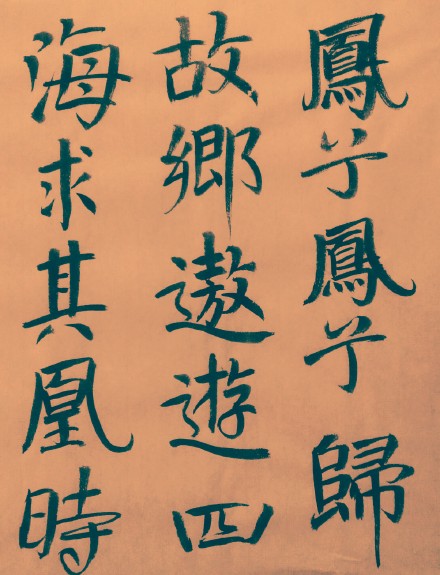 鳳兮鳳兮歸
故鄉遨遊四
海求其凰時